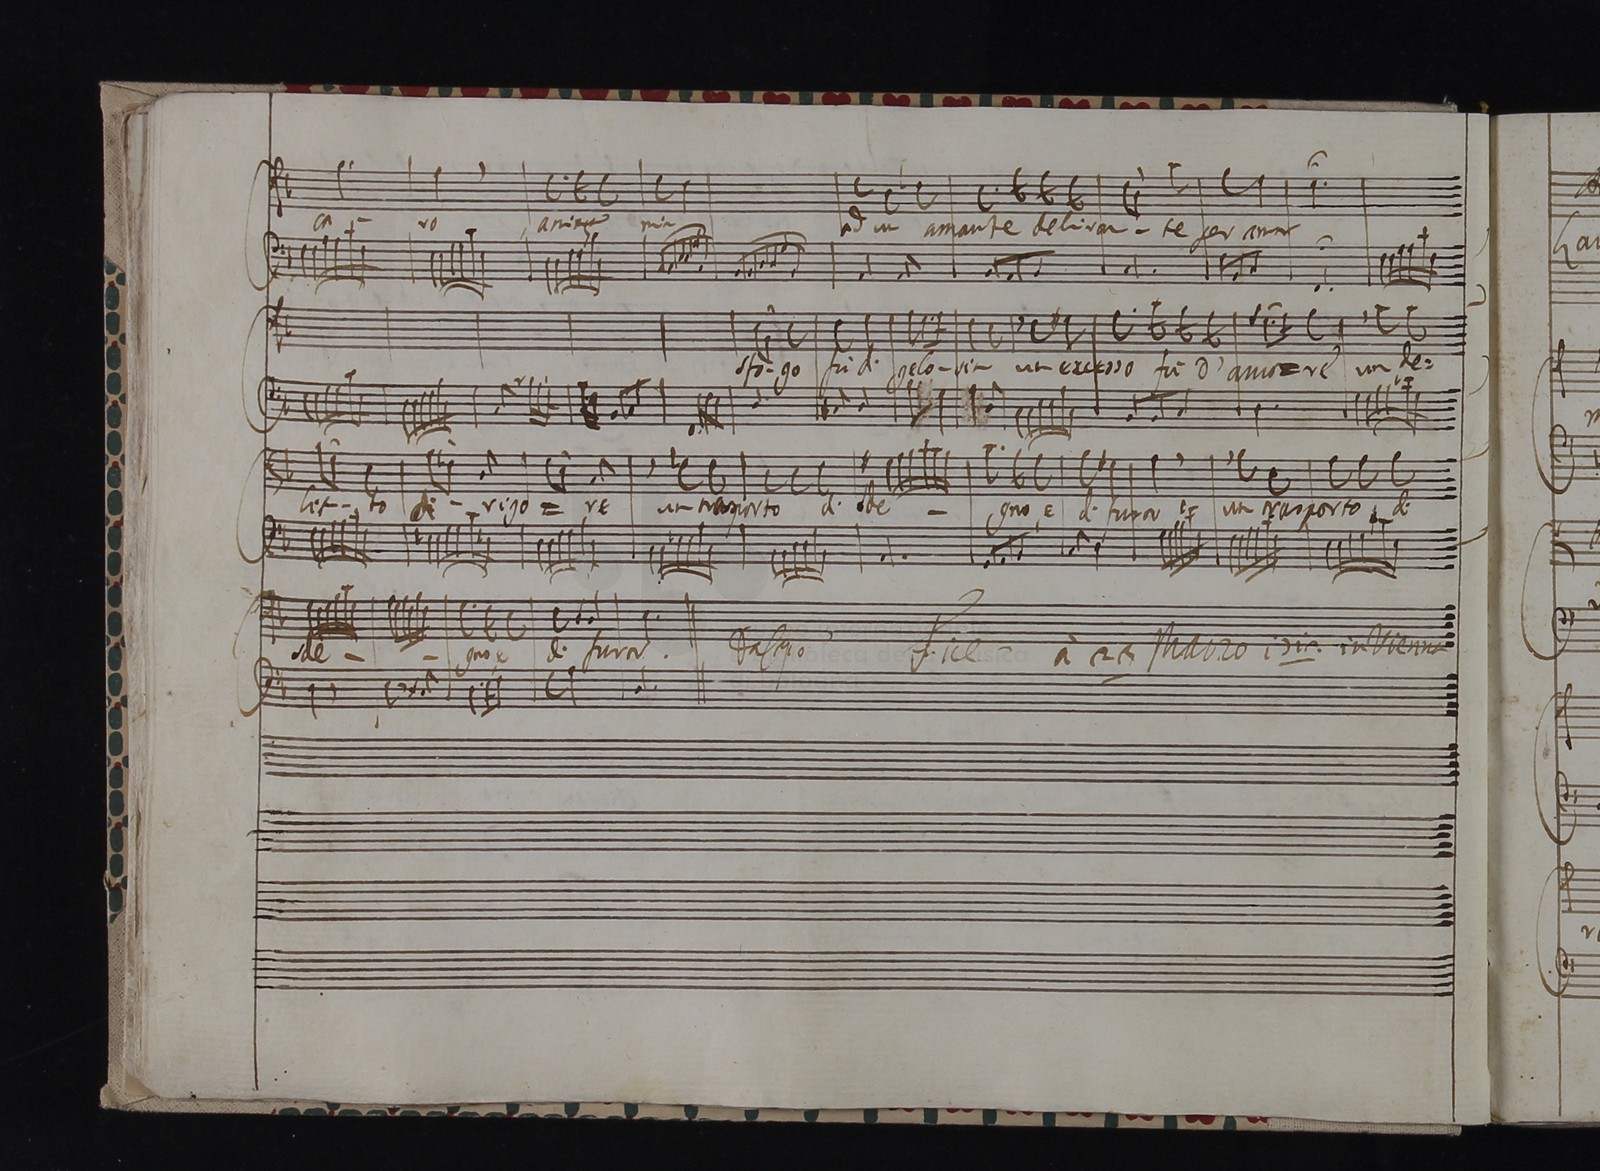 ca - ro anima mia ad un amante deliran - te per amor
sfo - go fù di gelo - sia un eccesso fù d' amo = re un de =
lit - to di - rigo = re un trasporto di sde - gno e di furor un trasporto di
sde - - gno e di furor. Da Capo Fine à Marzo in Vienna